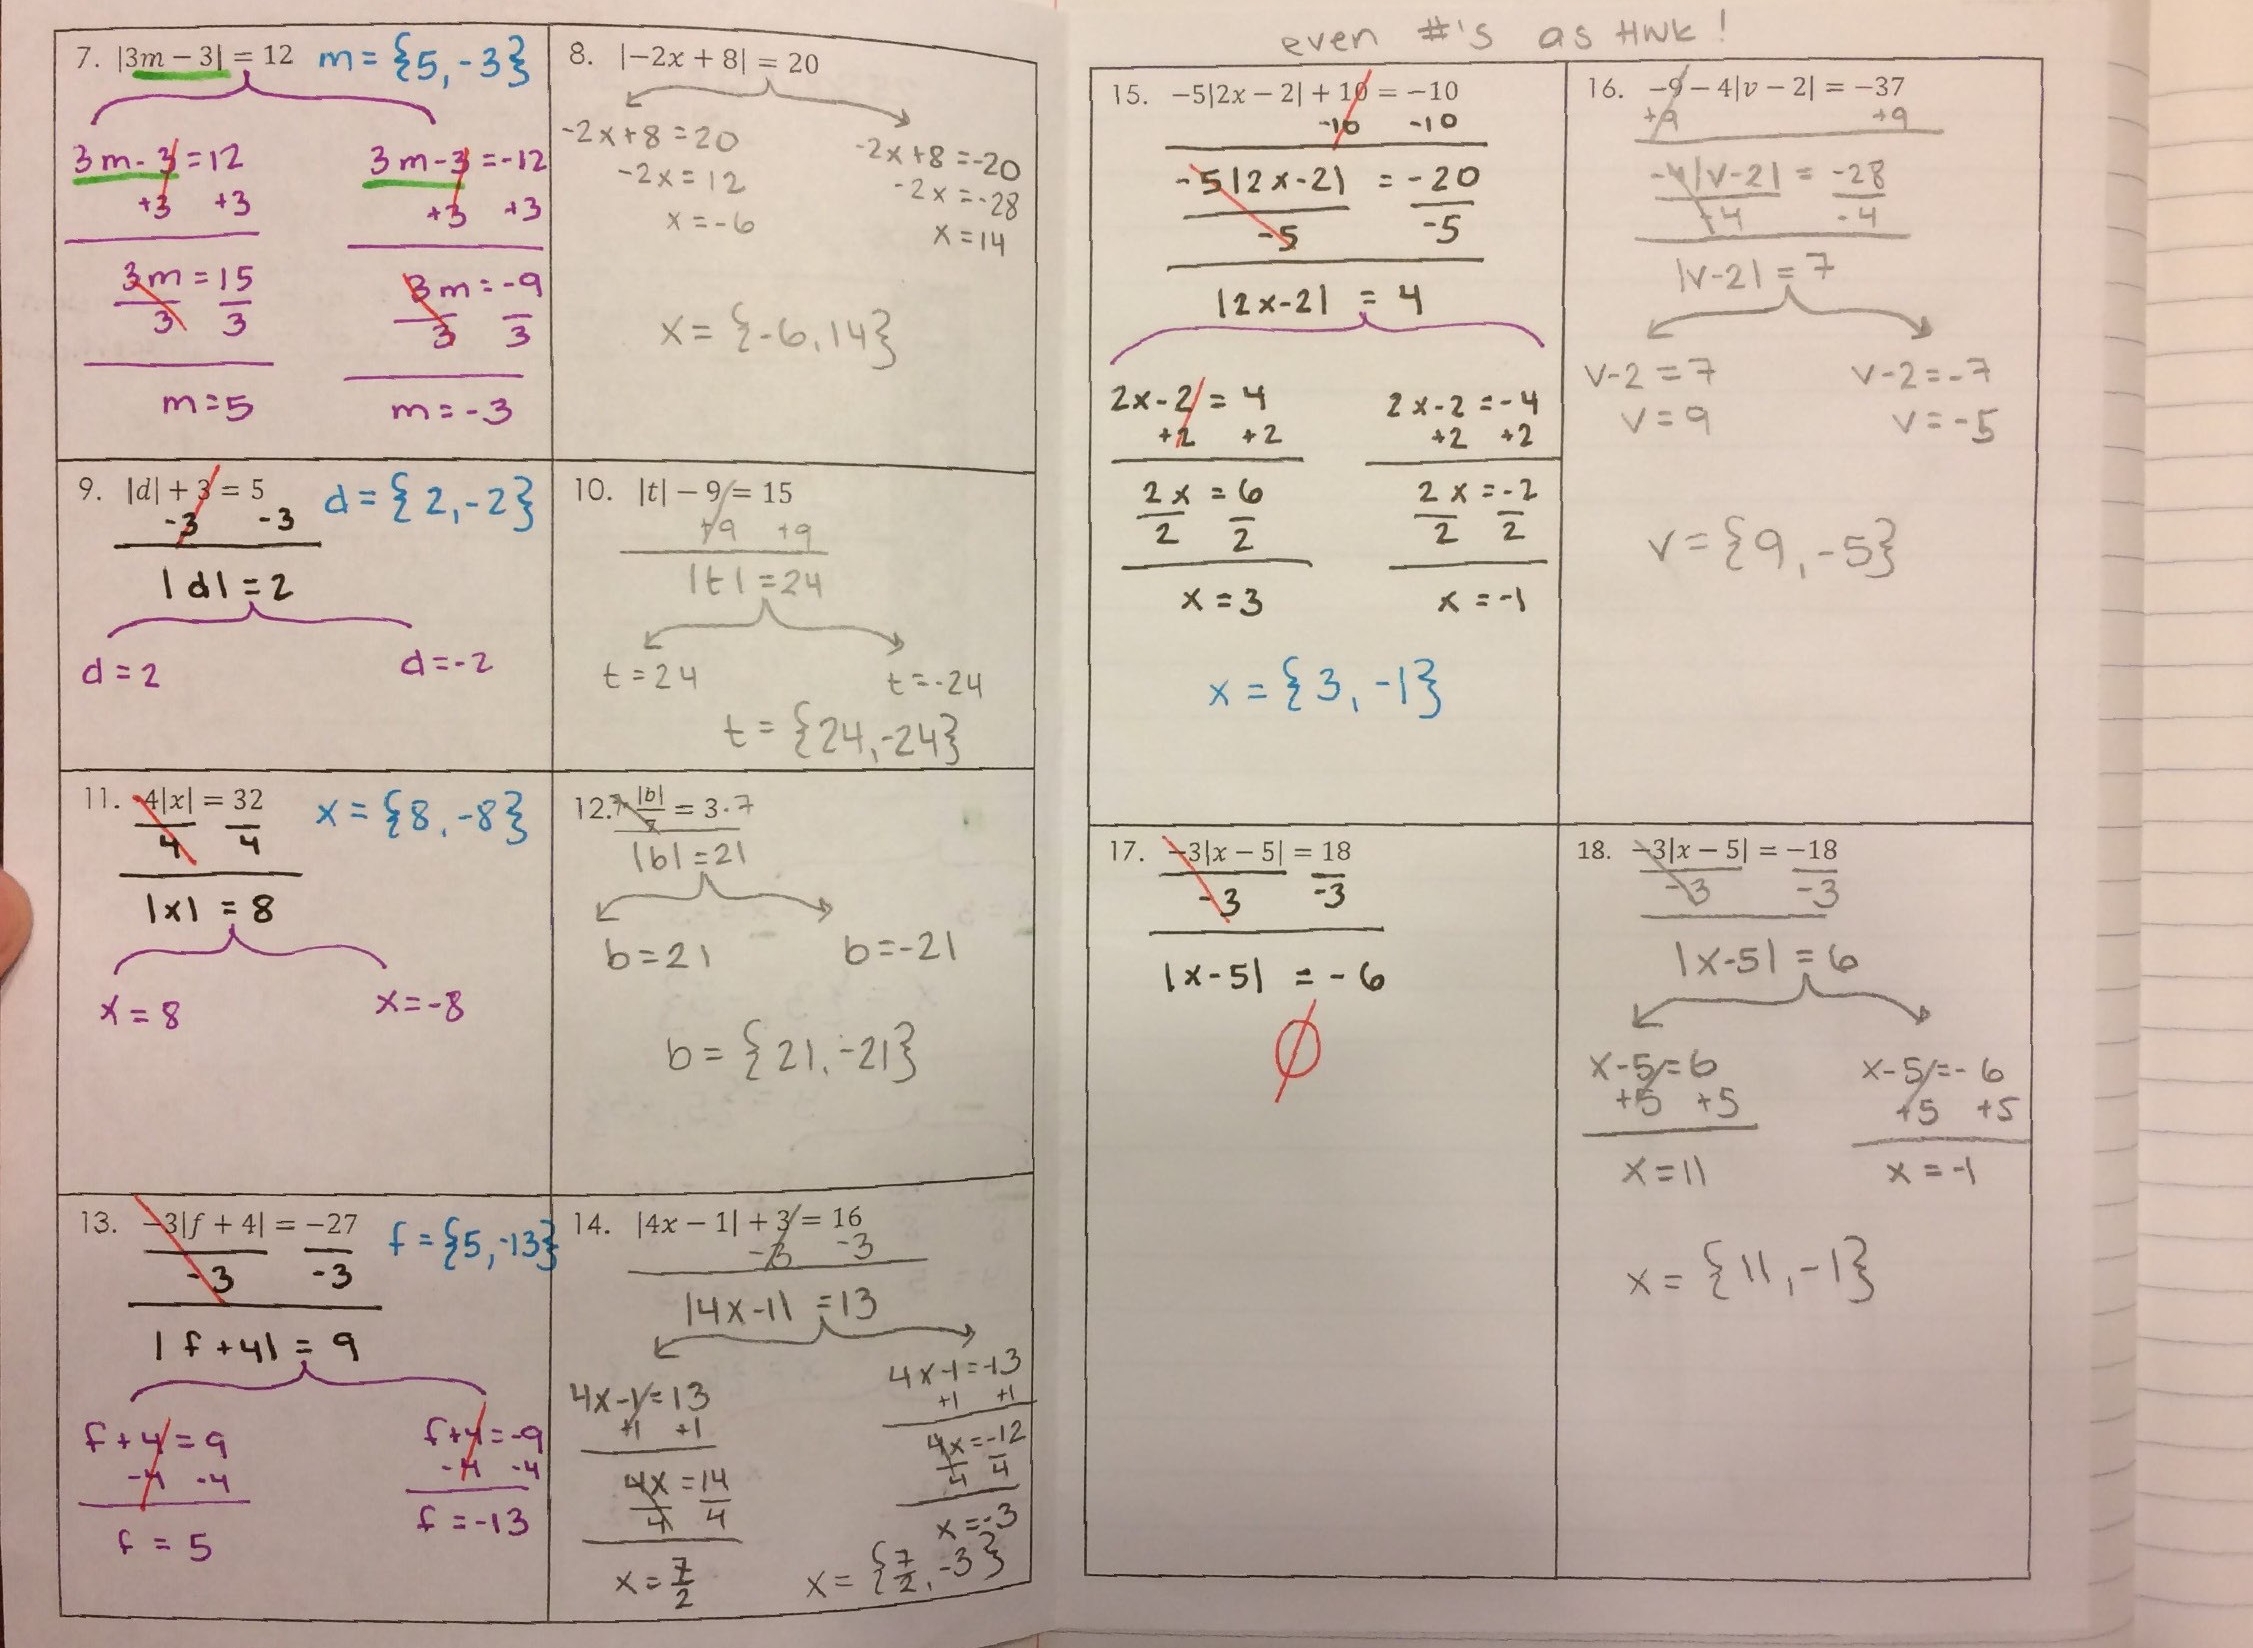 7. |3m − 3| = 12 m = {5, -3}
3m - 3 = 12 3m - 3 = -12
+3 +3 +3 +3
3m = 15 3m = -9
3 3 3 3
m = 5 m = -3
8. |−2x + 8| = 20
-2x+8 = 20 -2x+8 = -20
-2x = 12 -2x = -28
x = -6 x = 14
x = {-6, 14}
9. |d| + 3 = 5 d = {2, -2}
-3 -3
|d| = 2
d = 2 d = -2
10. |t| − 9 = 15
+9 +9
|t| = 24
t = 24 t = -24
t = {24, -24}
11. 4|x| = 32 x = {8, -8}
4 4
|x| = 8
x = 8 x = -8
12. 7· |b|/7 = 3 · 7
|b| = 21
b = 21 b = -21
b = {21, -21}
13. −3|f + 4| = −27 f = {5, -13}
-3 -3
|f+4| = 9
f+4 = 9 f+4 = -9
-4 -4 -4 -4
f = 5 f = -13
14. |4x − 1| + 3 = 16
-3 -3
|4x-1| = 13
4x-1 = 13 4x-1 = -13
+1 +1 +1 +1
4x = 14 4x = -12
4 4 4 4
x = 7/2 x = -3
x = {7/2, -3}
even #'s as HWK!
15. −5|2x − 2| + 10 = −10
-10 -10
-5|2x-2| = -20
-5 -5
|2x-2| = 4
2x-2 = 4 2x-2 = -4
+2 +2 +2 +2
2x = 6 2x = -2
2 2 2 2
x = 3 x = -1
x = {3, -1}
16. −9 − 4|v − 2| = −37
+9 +9
-4|v-2| = -28
-4 -4
|v-2| = 7
v-2 = 7 v-2 = -7
v = 9 v = -5
v = {9, -5}
17. −3|x − 5| = 18
-3 -3
|x-5| = -6
∅
18. −3|x − 5| = −18
-3 -3
|x-5| = 6
x-5 = 6 x-5 = -6
+5 +5 +5 +5
x = 11 x = -1
x = {11, -1}